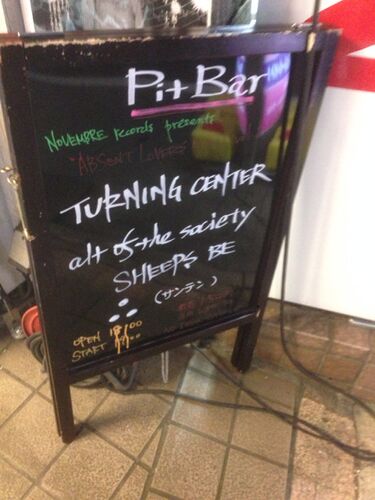 Pit Bar
NOVEMBRE records presents
"ABSENT LOVERS"
TURNING CENTER
alt of the society
SHEEPS BE
∴ (サンテン)
OPEN 18:00
START